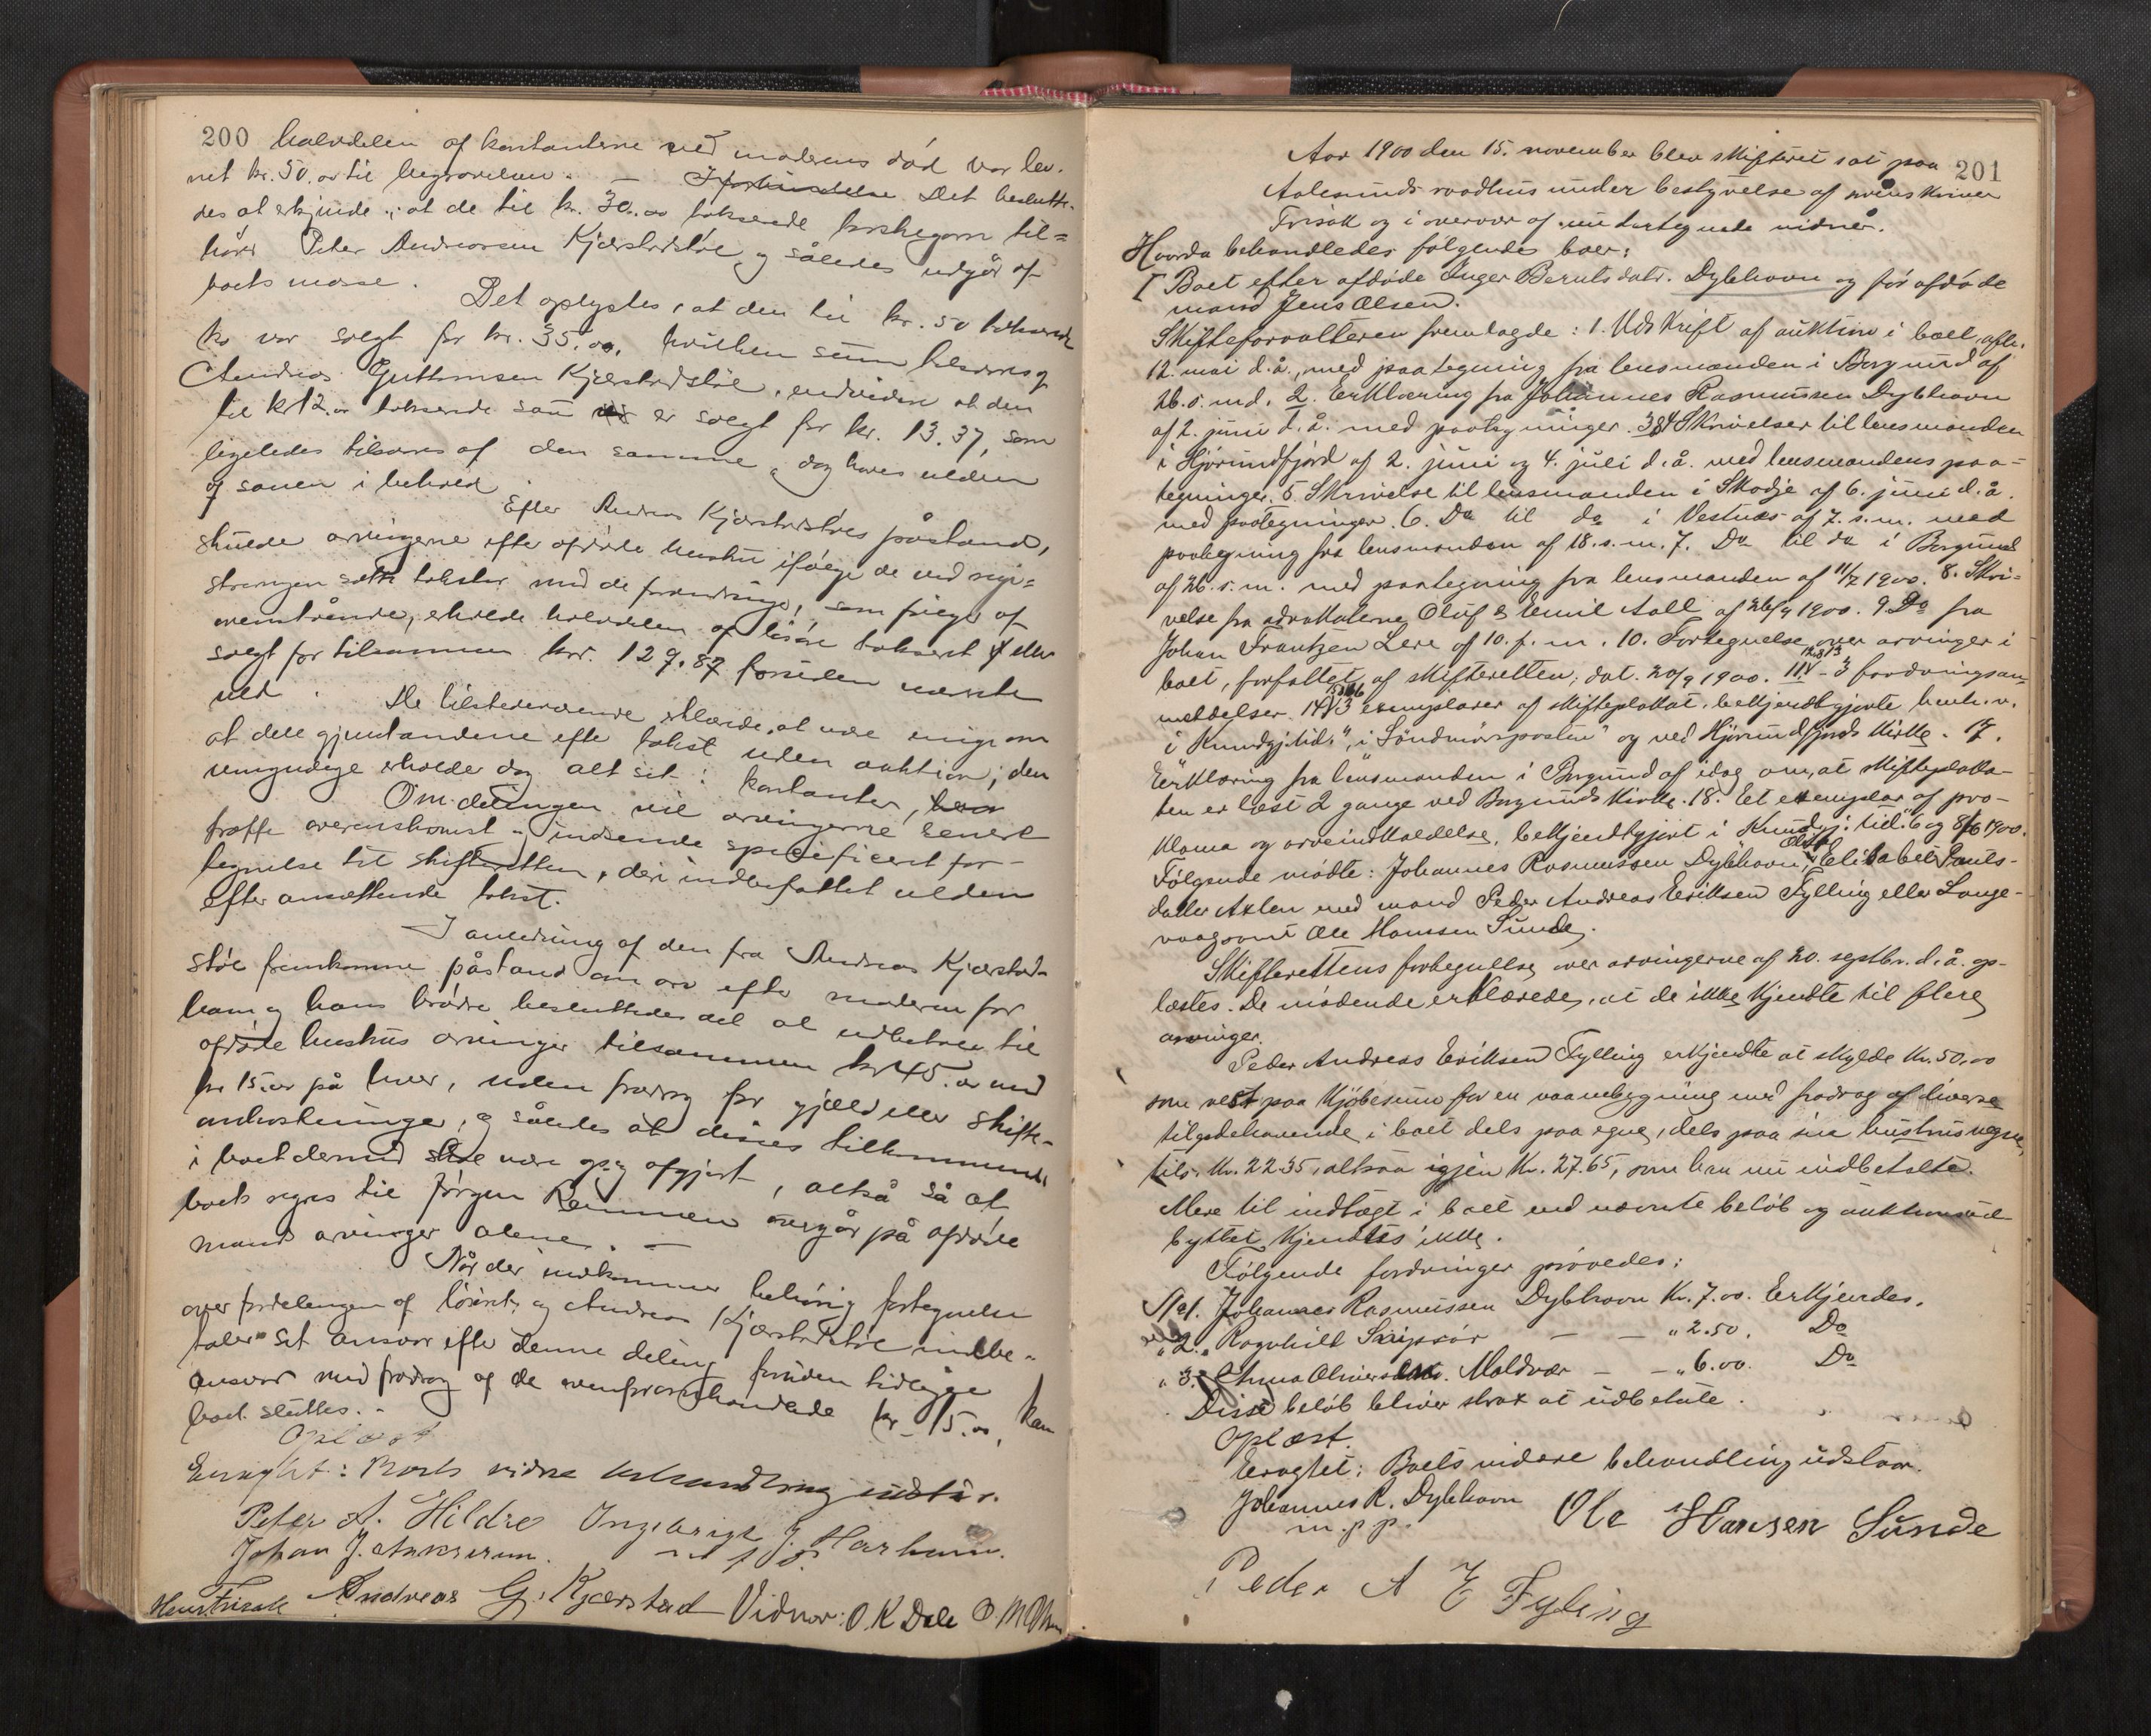 200 halvdelen af kontanterne ved moderens død var lev-
net kr. 50.00 til begravelsen. — I forbindelse Det beslutte-
des at erkjende, at de til kr. 30.00 takserede torskegarn til=
hører Peter Andreassen Kjærstadstøl og således udgår af
boets masse.
Det oplystes, at den til kr. 50 takserede
ko var solgt for kr. 35.00, hvilken sum besvares af
Andreas Guttormsen Kjærstadstøl, endvidere at den
til kr 12.00 takserede sau er solgt for kr. 13.37, som
ligeledes tilsvares af den samme, dog haves ulden
af sauen i behold.
Efter Andreas Kjærstadstøls påstand,
skulde arvingerne efter afdøde hustru ifølge de ved regi=
streringen satte takster med de forandringer, som følger af
ovenstående, erholde halvdelen af løsøre takseret eller
solgt for tilsammen kr. 129.87 foruden nævnte
uld.
De tilstedeværende erklærede, at være enige om
at dele gjenstandene efter takst uden auktion; den
umyndige erholde dog alt sit i kontanter,
Om delingen vil arvingerne senere
træffe overenskomst og indsende specificeret for-
tegnelse til skifteretten, deri indbefattet ulden
efter ansættende takst.
I anledning af den fra Andreas Kjærstad-
støl fremkomne påstand om arv efter moderen for
ham og hans brødre besluttedes det at udbetale til
afdøde hustrus arvinger tilsammen kr 45.00 med
kr 15.00 på hver, uden fradrag for gjæld eller skifte-
omkostninger, og således at disses tilkommende
i boet dermed skal være opgjort, altså så at
boets regres til Jørgen Remmen overgår på afdøde
mands arvinger alene. —
Når der indkommer behørig fortegnelse
over fordelingen af løsøret, og Andreas Kjærstadstøl indbe-
taler sit ansvar efter denne deling foruden tidligere
ansvar med fradrag af de ovenfor omhandlede kr 15.00, kan
boet sluttes. -
Oplæst
Eragtet: Boets videre behandling udstår.
Peter A. Hildre Ingebrigt J. Harham.
Johan J.
Hans Frisak Andreas G. Kjærstad Vidner: O. K Dale
201
Aar 1900 den 15. november blev skifteret sat paa
Aalesunds raadhus under bestyrelse af sorenskriver
Frisak og i overvær af undertegnede vidner.
Hvorda behandledes følgende boer:
I Boet efter afdøde Inger Berntsdatr. Dybhavn og før afdøde
mand Jens Olsen.
Skifteforvalteren fremlagde: 1. Udskrift af auktion i boet, afh.
12. mai d.å., med paategning fra lensmanden i Borgund af
26. s. md. 2. Erklæring fra Johannes Rasmussen Dybhavn
af 2. juni d.å. med paategninger. 3 & 4 Skrivelser til lensmanden
i Hjørundfjord af 2. juni og 4. juli d.å. med lensmandens paa=
tegninger. 5 Skrivelse til lensmanden i Skodje af 6. juni d.å.
med paategninger. 6. Do til do i Vestnæs af 7. s.m. med
paategning fra lensmanden af 18. s. m. 7. Do til do i Borgund
af 26. s. m. med paategning fra lensmanden af 11/7 1900. 8. Skri-
velse fra advokaterne Oluf & Emil Aall af 26/9 1900. 9 Do fra
Johan Frantzen Lere af 10. f. m. 10. Fortegnelse over arvinger i
boet, forfattet af skifteretten, dat. 20/9 1900. 11, 12 & 13 - 3 fordringsan-
meldelser. 14, 15 & 16 3 exemplarer af skifteplakat, bekjendtgjorte henh.v.
i "Kundgj.tid.", i "Søndmørsposten" og ved Hjørundfjords Kirke. 17.
Erklæring fra lensmanden i Borgund af idag om, at skifteplaka-
ten er læst 2 gange ved Borgunds Kirke. 18. Et exemplar af pro-
klama og arveindkaldelse, bekjendtgjort i Kundgj. tid. 6 og 8/6 1900.
Følgende mødte: Johannes Rasmussen Dybhavn, Elisabet Pauls-
datter Axlen med mand Peder Andreas Eriksen Fylling eller Lange-
vaag samt Ole Hansen Sunde.
Skifterettens fortegnelse over arvingerne af 20. septbr. d.å. op-
læstes. De mødende erklærede, at de ikke kjendte til flere
arvinger.
Peder Andreas Eriksen Fylling erkjendte at skylde kr. 50.00
som rest paa kjøbesum for en vaanebygning med fradrag af diverse
tilgodehavende i boet dels paa egne, dels paa sin hustrus vegne,
tils. kr. 22.35, altsaa igjen kr. 27.65, som han nu indbetalte.
Mere til indtægt i boet end nævnte beløb og auktionsud-
byttet kjendtes ikke.
Følgende fordringer prøvedes:
No 1. Johannes Rasmussen Dybhavn Kr. 7.00. Erkjendes.
" 2. Ragnhild — — " 2.50. Do
" 3. Anna Moldvær — — " 6.00. Do
Disse beløb bliver strax at udbetale.
Oplæst.
Eragtet: Boets videre behandling udstaar.
Johannes R. Dybhavn Ole Hansen Sunde
m. p. p.
Peder A E Fyling